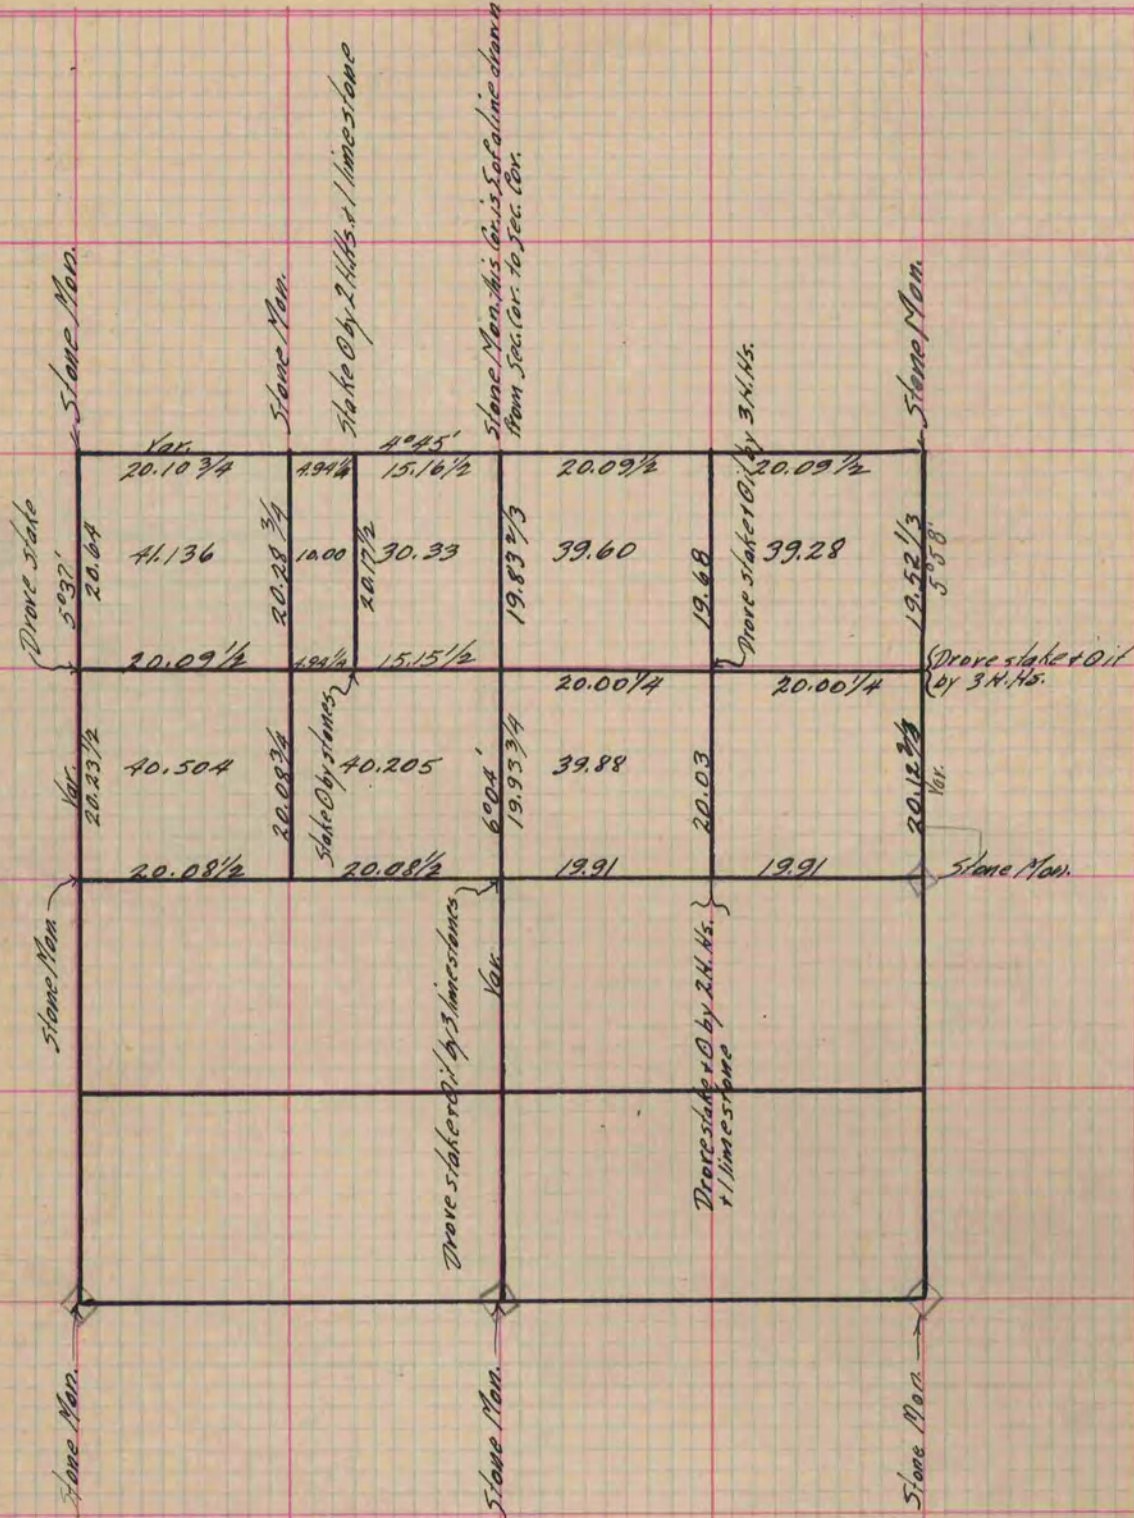 Stone Mon.
Stone Mon.
Stake ⊙ by 2 H.Hs. + 1 limestone
Stone Mon. this Cor. is S of a line drawn
from Sec. Cor. to Sec. Cor.
Drove stake + ⊙ it by 3 H.Hs.
Stone Mon.
Var.
4°45'
20.10 3/4
4.94 1/4
15.16 1/2
20.09 1/2
20.09 1/2
Drove stake
5°37'
20.64
41.136
20.28 3/4
10.00
20.17 1/2
30.33
19.83 2/3
39.60
19.68
39.28
19.52 1/3
5°58'
20.09 1/2
4.94 1/4
15.15 1/2
20.00 1/4
20.00 1/4
Drove stake + ⊙ it
by 3 H.Hs.
Var.
20.23 1/2
40.504
20.08 3/4
Stake ⊙ by stones
40.205
6°04'
19.93 3/4
39.88
20.03
20.12 2/3
Var.
20.08 1/2
20.08 1/2
19.91
19.91
Stone Mon.
Stone Mon.
Drove stake + ⊙ it by 3 limestones
Var.
Drove stake + ⊙ by 2 H.Hs.
+ 1 limestone
Stone Mon.
Stone Mon.
Stone Mon.